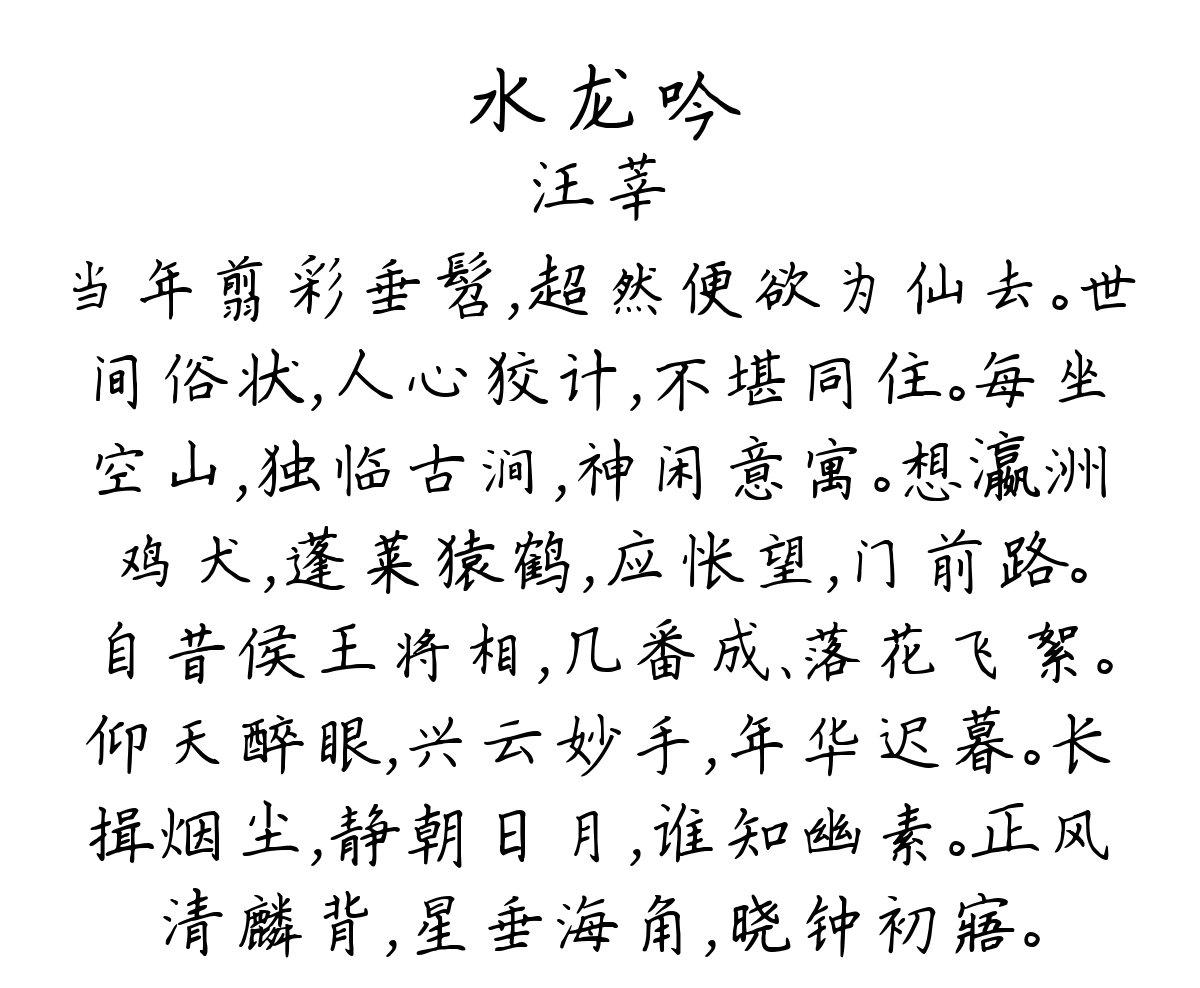 水龙吟
汪莘
当年翦彩垂髫,超然便欲为仙去。世
间俗状,人心狡计,不堪同住。每坐
空山,独临古涧,神闲意寓。想瀛洲
鸡犬,蓬莱猿鹤,应怅望,门前路。
自昔侯王将相,几番成、落花飞絮。
仰天醉眼,兴云妙手,年华迟暮。长
揖烟尘,静朝日月,谁知幽素。正风
清麟背,星垂海角,晓钟初寤。